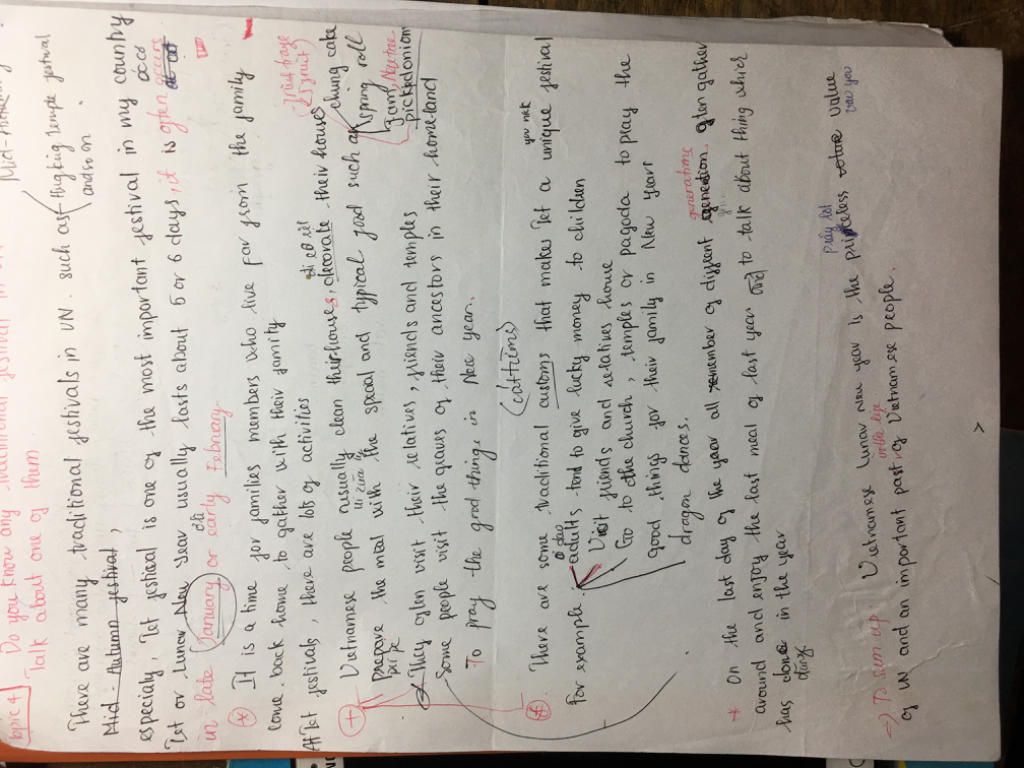 topic 4 Do you know any traditional festival in
Talk about one of them.
There are many traditional festivals in VN. such as
fighting temple festival
and so on
Mid-Autumn festival,
especialy, Tet festival is one of the most important festival in my country
Tet or Lunar New year usually lasts about 5 or 6 days, it is often occurs
in late January or early February
It is a time for families members who live far from the family
come back home to gather with their family
At Tet festivals, there are lots of activities
Vietnamese people rusually clean their houses, decorate their houses
prepare the meal with the special and typical food such as
chung cake
spring roll
pickedonion
They often visit their relatives, friends and temples
Some people visit the graves of their ancestors in their homeland
To pray the good thing in New year.
There are some traditional customs that makes Tet a unique festival
For example: adults tend to give lucky money to children
Visit friends and relatives house
Go to the church, temples or pagada to pray the
good things for their family in New year
dragon dances.
+ On the last day of the year all member of diffirent generation often gather
around and enjoy the last meal of last year and to talk about thing which
has done in the year
=> To sum up Vietnamese Lunar New year is the priceless value
of VN and an important part of Vietnamese people.